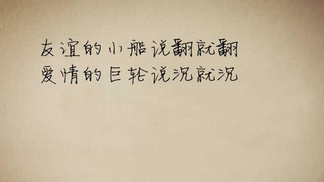 友谊的小船说翻就翻
爱情的巨轮说沉就沉